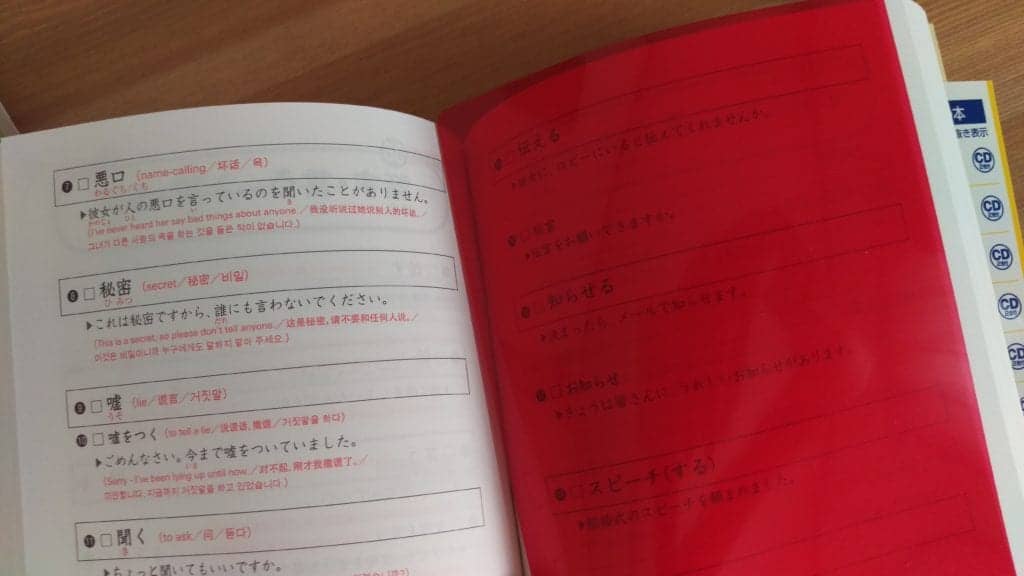 ❼ □ 悪口 (name-calling／坏话／욕)
わるぐち／くち
▶彼女が人の悪口を言っているのを聞いたことがありません。
(I've never heard her say bad things about anyone.／我没听说过她说别人的坏话。／
그녀가 다른 사람의 욕을 하는 것을 들은 적이 없습니다.)
❽ □ 秘密 (secret／秘密／비밀)
ひみつ
▶これは秘密ですから、誰にも言わないでください。
だれ
(This is a secret, so please don't tell anyone.／这是秘密,请不要和任何人说。／
이것은 비밀이니까 누구에게도 말하지 말아 주세요.)
❾ □ 嘘 (lie／谎言／거짓말)
うそ
❿ □ 嘘をつく (to tell a lie／说谎话、撒谎／거짓말을 하다)
▶ごめんなさい。今まで嘘をついていました。
いま
(Sorry - I've been lying up until now.／对不起,刚才我撒谎了。／
미안합니다. 지금까지 거짓말을 하고 있었습니다.)
⓫ □ 聞く (to ask／问／묻다)
き
▶ちょっと聞いてもいいですか。
□ 伝える
ロビーにいると伝えてくれませんか。
□ 伝言
▶伝言をお願いできますか。
□ 知らせる
▶決まったら、メールで知らせます。
□ お知らせ
▶きょうは皆さんに、うれしいお知らせがあります。
□ スピーチ(する)
▶結婚式のスピーチを頼まれました。
本
抜き表示
CD
CD
CD
CD
CD